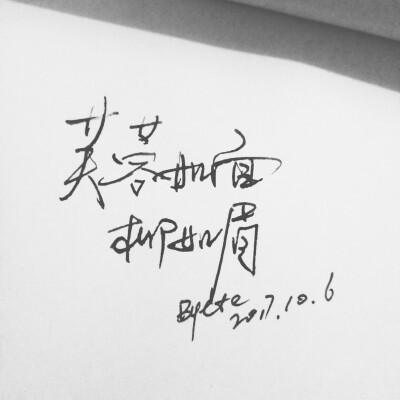 芙蓉如面
柳如眉
2017.10.6